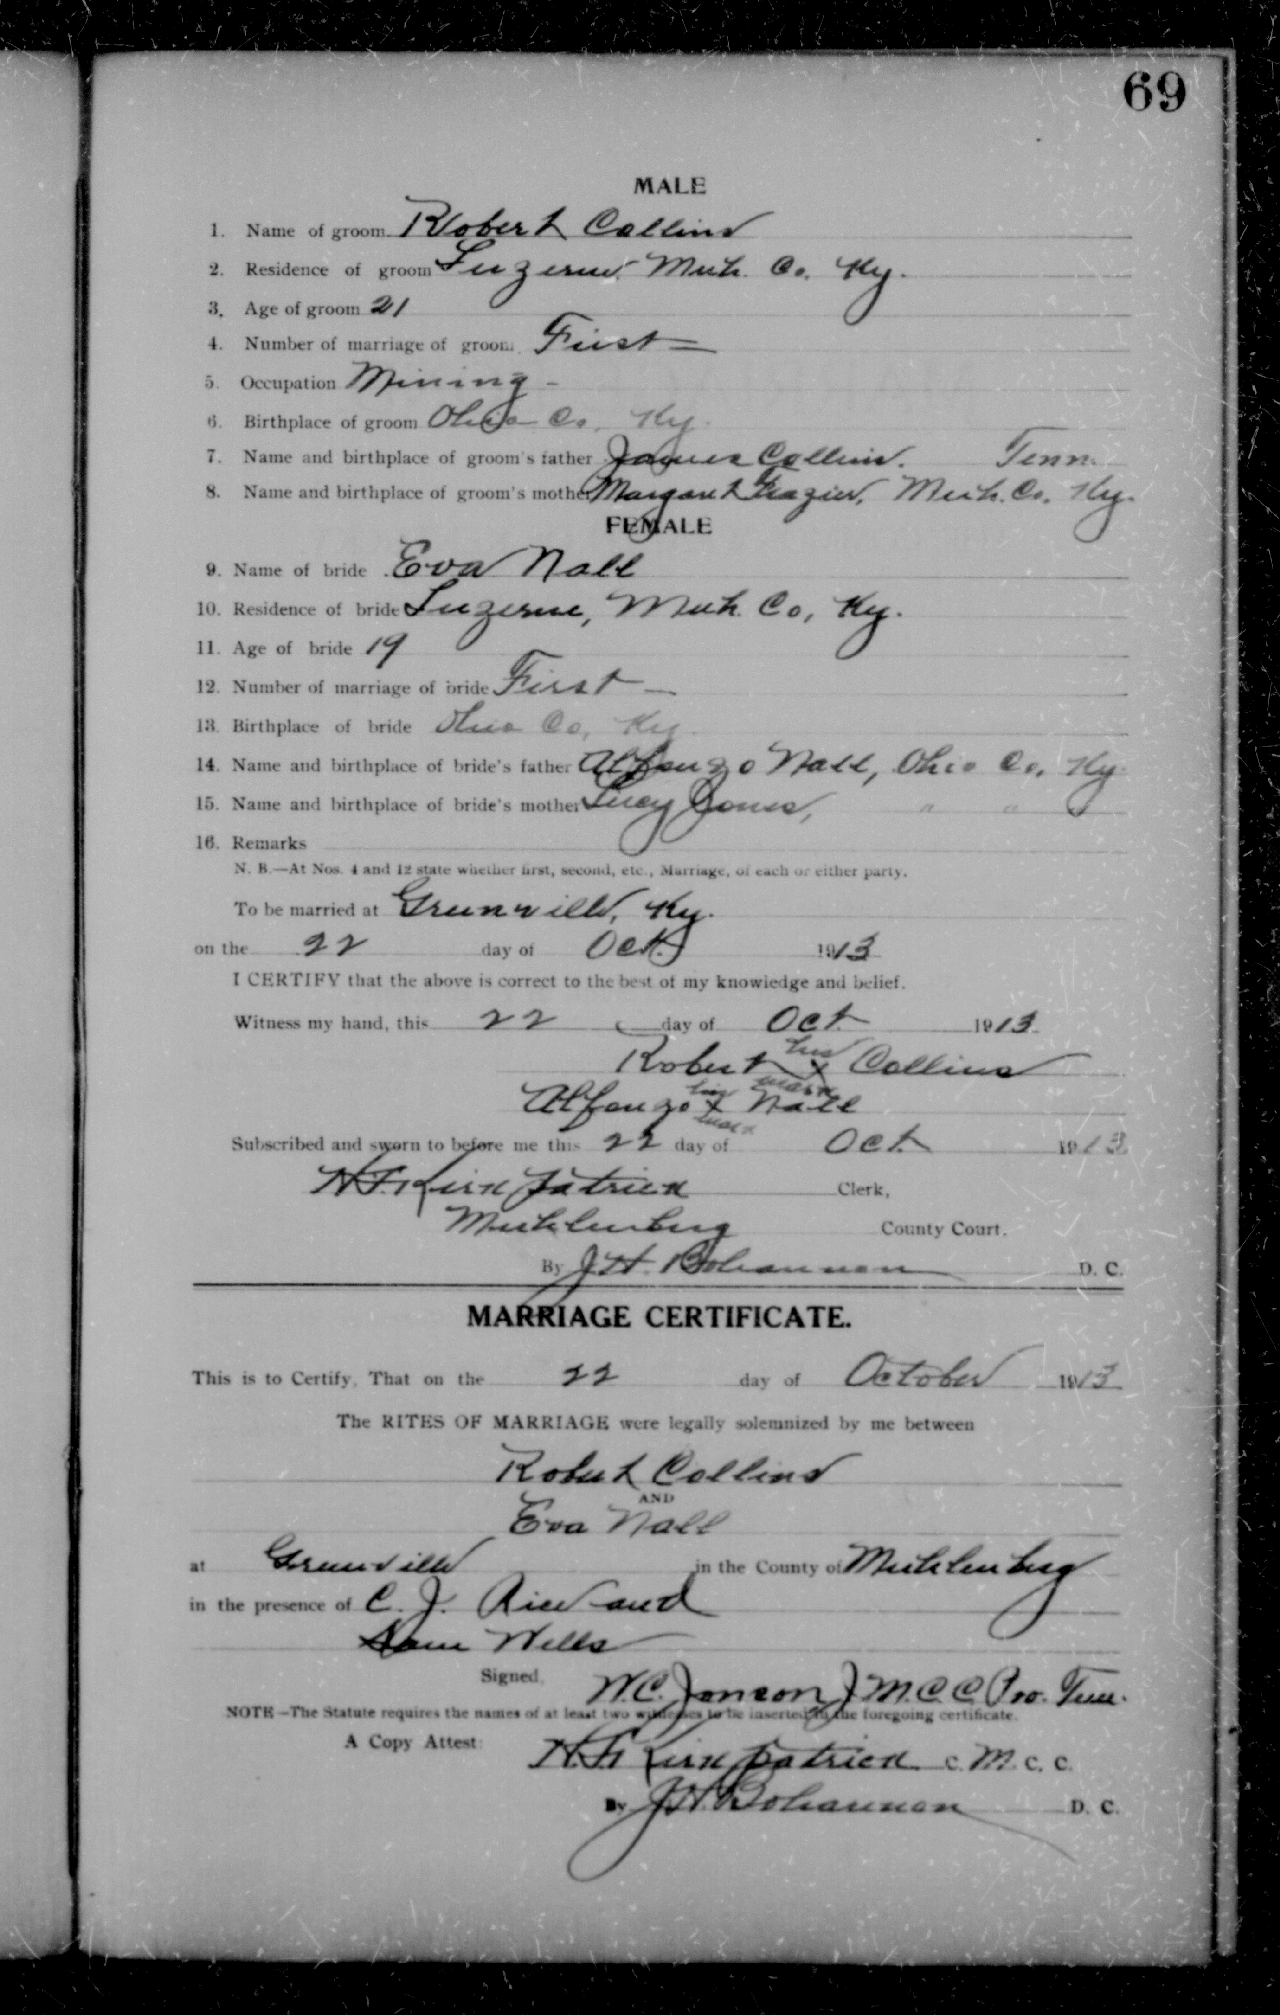 69
MALE
1. Name of groom Robert Collins
2. Residence of groom Luzerne Muh. Co. Ky.
3. Age of groom 21
4. Number of marriage of groom First
5. Occupation Mining
6. Birthplace of groom Ohio Co, Ky.
7. Name and birthplace of groom's father James Collins. Tenn.
8. Name and birthplace of groom's mother Margaret Frazier, Muh. Co, Ky.
FEMALE
9. Name of bride Eva Nall
10. Residence of bride Luzerne, Muh. Co, Ky.
11. Age of bride 19
12. Number of marriage of bride First
13. Birthplace of bride Ohio Co, Ky.
14. Name and birthplace of bride's father Alfonzo Nall, Ohio Co, Ky
15. Name and birthplace of bride's mother Lucy Jones, " " "
16. Remarks
N. B.—At Nos. 4 and 12 state whether first, second, etc., Marriage, of each or either party.
To be married at Greenville, Ky.
on the 22 day of Oct. 1913
I CERTIFY that the above is correct to the best of my knowledge and belief.
Witness my hand, this 22 day of Oct. 1913
Robert his x mark Collins
Alfonzo his x mark Nall
Subscribed and sworn to before me this 22 day of Oct. 1913
Kirkpatrick Clerk,
Muhlenberg County Court.
By J.H. Bohannon D. C.
MARRIAGE CERTIFICATE.
This is to Certify, That on the 22 day of October 1913
The RITES OF MARRIAGE were legally solemnized by me between
Robert Collins
AND
Eva Nall
at Greenville in the County of Muhlenberg
in the presence of C. J. Rice and
Sam Wells
Signed, W.C. Jonson J M.C.C Pro. Tem.
NOTE—The Statute requires the names of at least two witnesses to be inserted in the foregoing certificate.
A Copy Attest: Kirkpatrick C. M. C. C.
By J.H. Bohannon D. C.